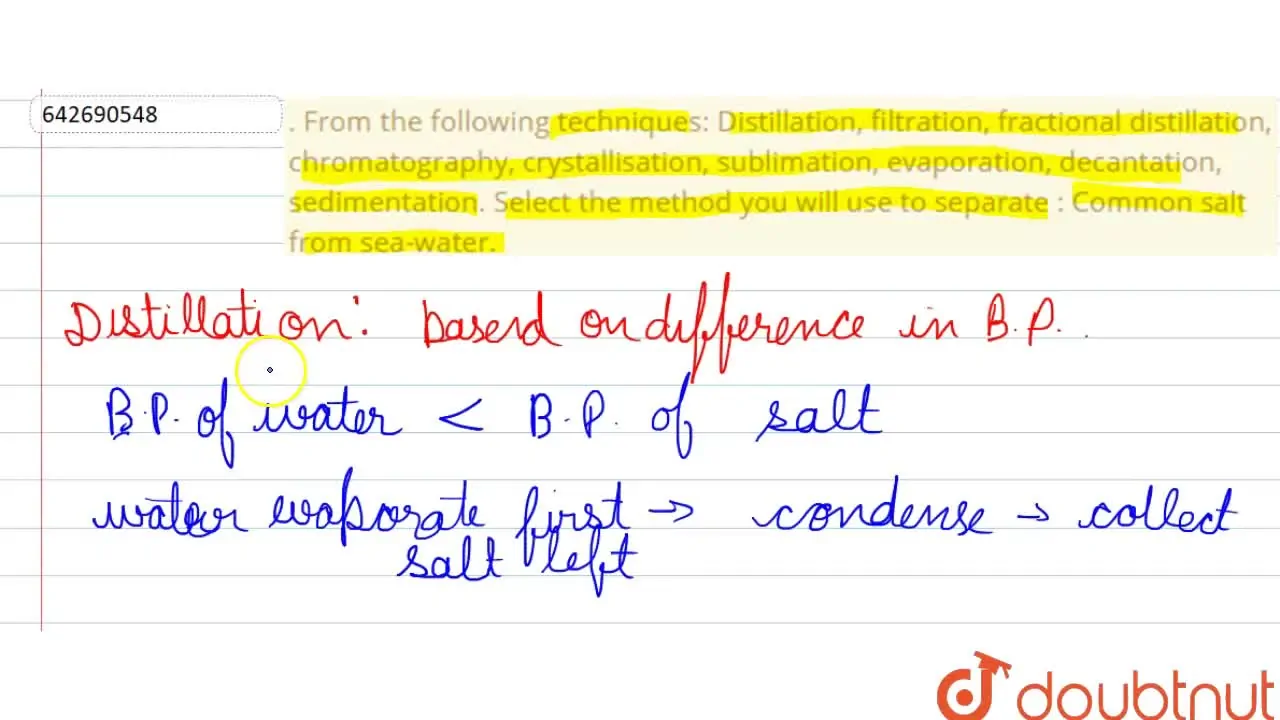 642690548
. From the following techniques: Distillation, filtration, fractional distillation,
chromatography, crystallisation, sublimation, evaporation, decantation,
sedimentation. Select the method you will use to separate : Common salt
from sea-water.
Distillation: based on difference in B.P.
B.P. of water < B.P. of salt
water evaporate first → condense → collect
salt left
doubtnut